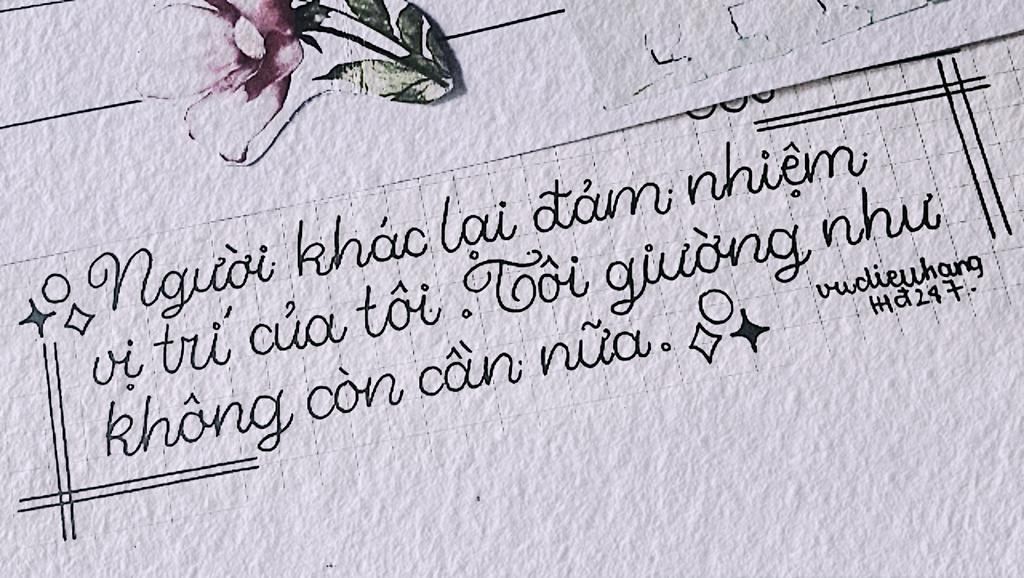 Người khác lại đảm nhiệm
vị trí của tôi. Tôi giường như
không còn cần nữa.
vudieuhang